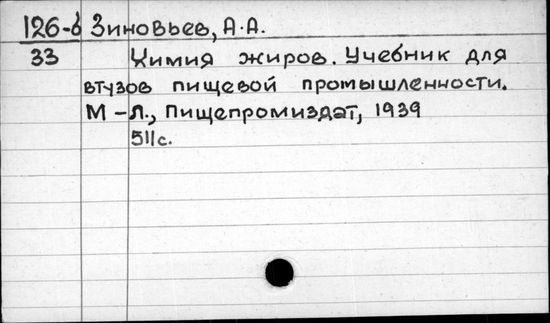 126-б Зиновьев, А.А.
33 Химия жиров. Учебник для
втузов пищевой промышленности.
М-Л., Пищепромиздат, 1939
511с.